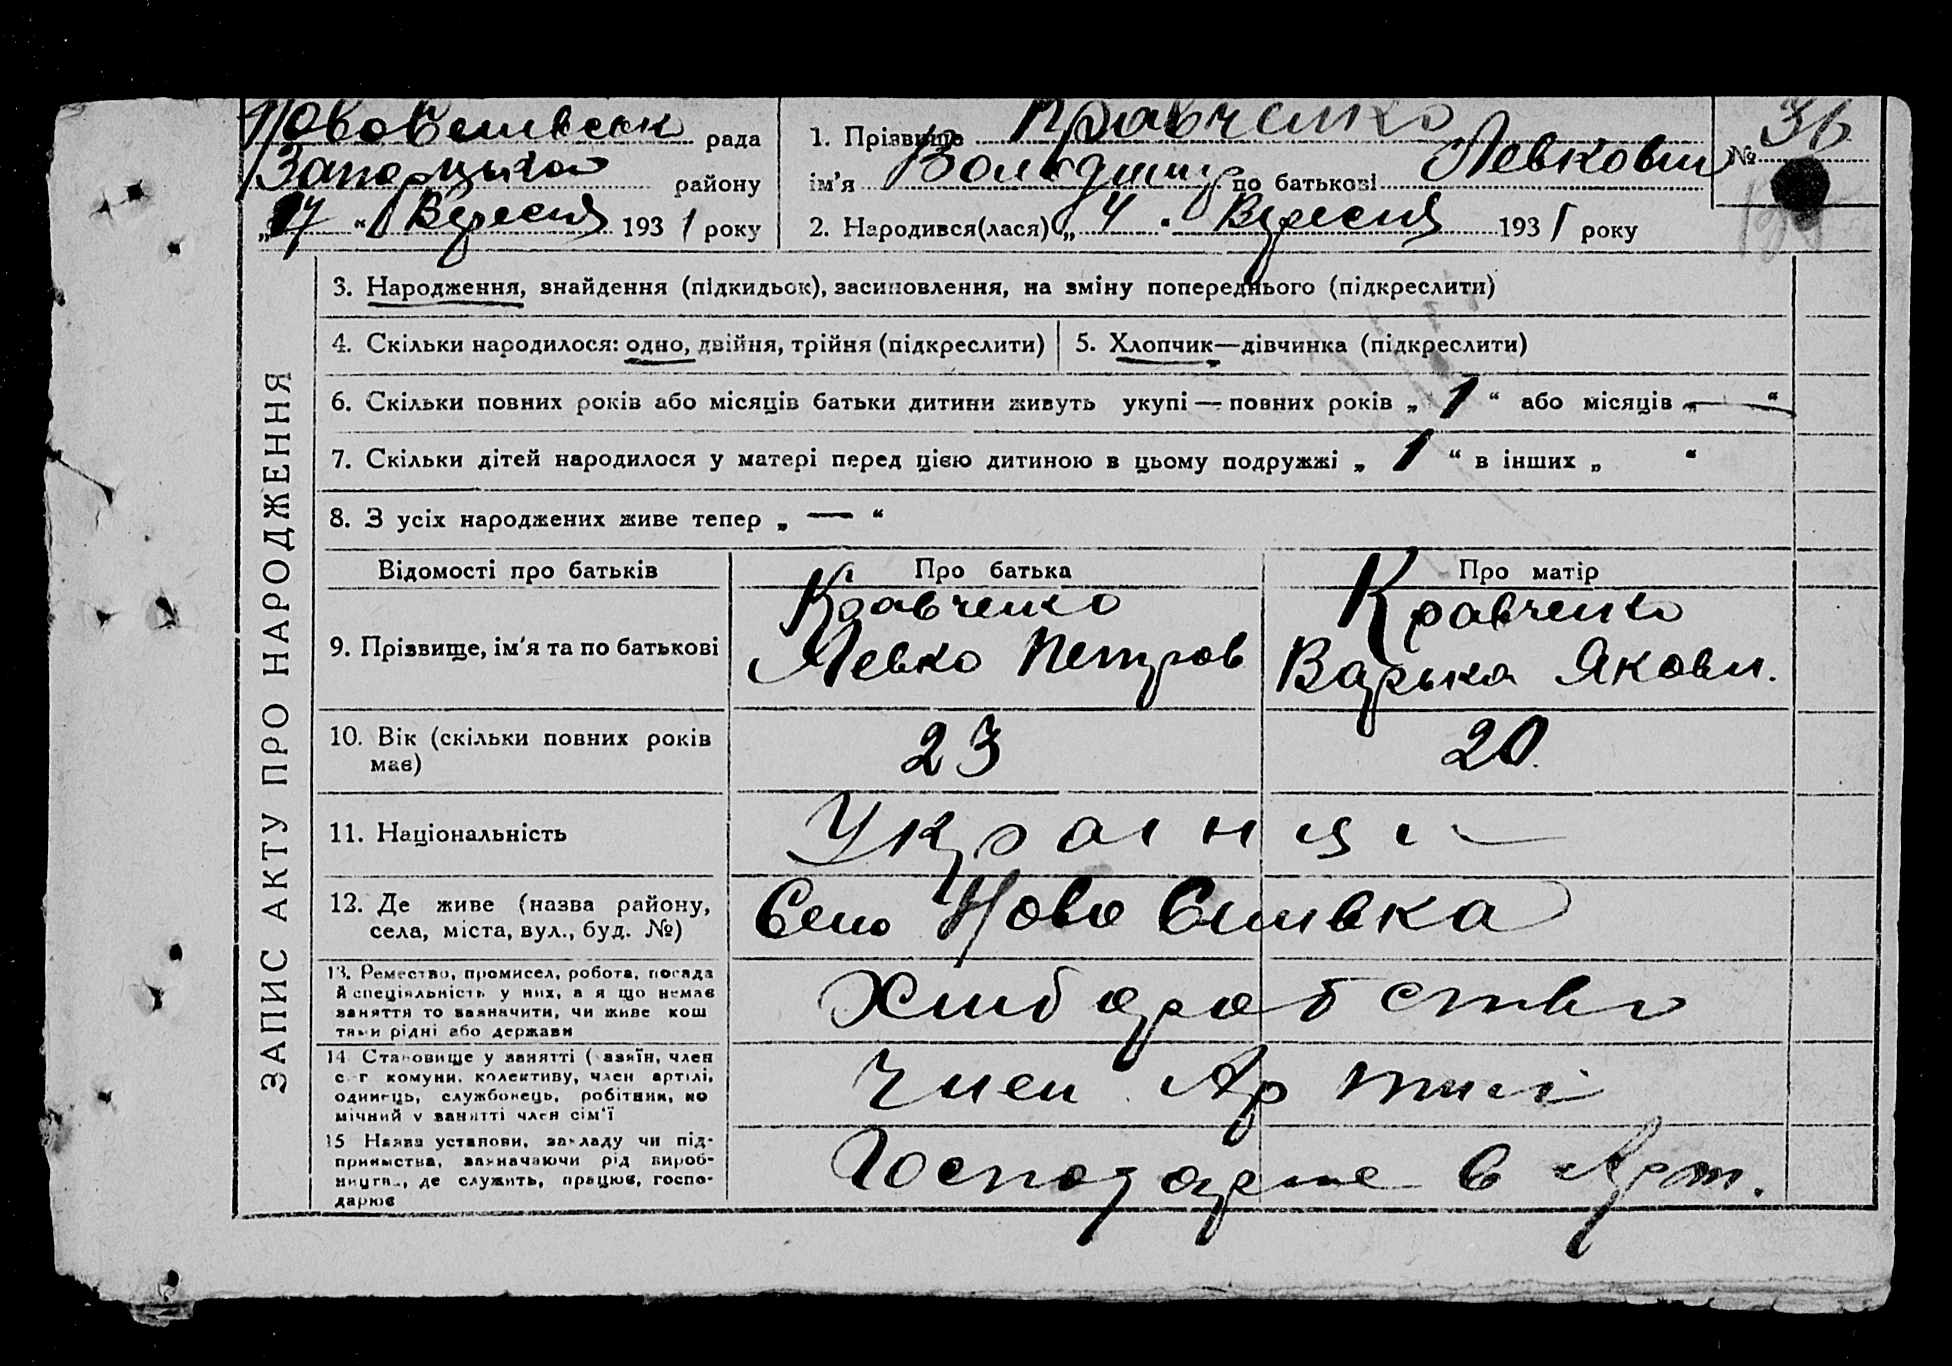 рада
Запорізького району
„17“ Вересня 1931 року
1. Прізвище Кравченко
ім'я Володимир по батькові Левкович
2. Народився(лася) „4“ Вересня 1931 року
№ 36
ЗАПИС АКТУ ПРО НАРОДЖЕННЯ
3. Народження, знайдення (підкидьок), засиновлення, на зміну попереднього (підкреслити)
4. Скільки народилося: одно, двійня, трійня (підкреслити)
5. Хлопчик—дівчинка (підкреслити)
6. Скільки повних років або місяців батьки дитини живуть укупі — повних років „1“ або місяців „—“
7. Скільки дітей народилося у матері перед цією дитиною в цьому подружжі „1“ в інших „ “
8. З усіх народжених живе тепер „—“
Відомості про батьків
Про батька
Про матір
9. Прізвище, ім'я та по батькові
Кравченко
Левко Петров
Кравченко
Варька Яковл.
10. Вік (скільки повних років
має)
23
20.
11. Національність
Українци
12. Де живе (назва району,
села, міста, вул., буд. №)
Село Ново
13. Ремество, промисел, робота, посада
й спеціяльність у них, а якщо немає
заняття то зазначити, чи живе кош
тами рідні або держави
Хліборобство
14. Становище у занятті (хазяїн, член
с.-г комуни, колективу, член артілі,
одинець, службовець, робітник, по
мічний у занятті член сім'ї
Член Артілі
15 Назва установи, закладу чи під-
приємства, зазначаючи рід вироб-
ництва, де служить, працює, госпо-
дарює
в Арт.